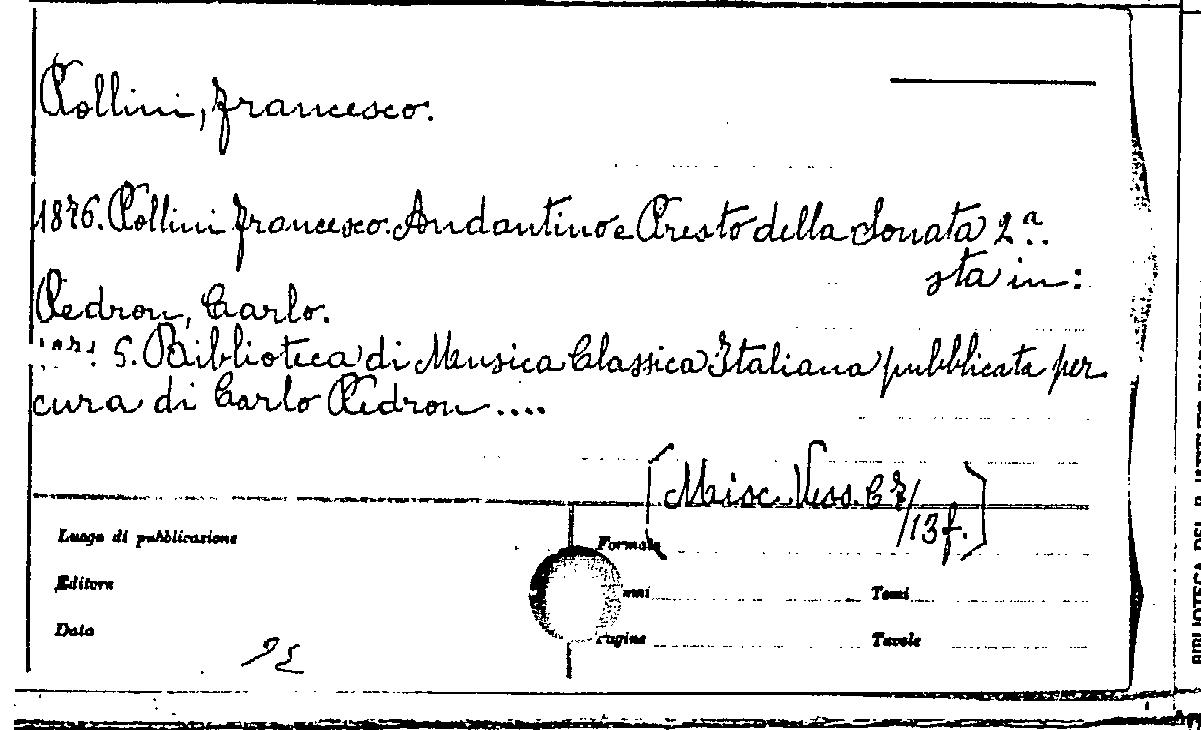 Pollini, Francesco.
1876. Pollini Francesco. Andantino e Presto della Sonata 2ª.
sta in:
Pedron, Carlo.
S. Biblioteca di Musica Classica Italiana pubblicata per
cura di Carlo Pedron....
[Misc. Vess. C
/13f.]
Luogo di pubblicazione
Formato
Editore
Tomi
Data
Pagine
Tavole